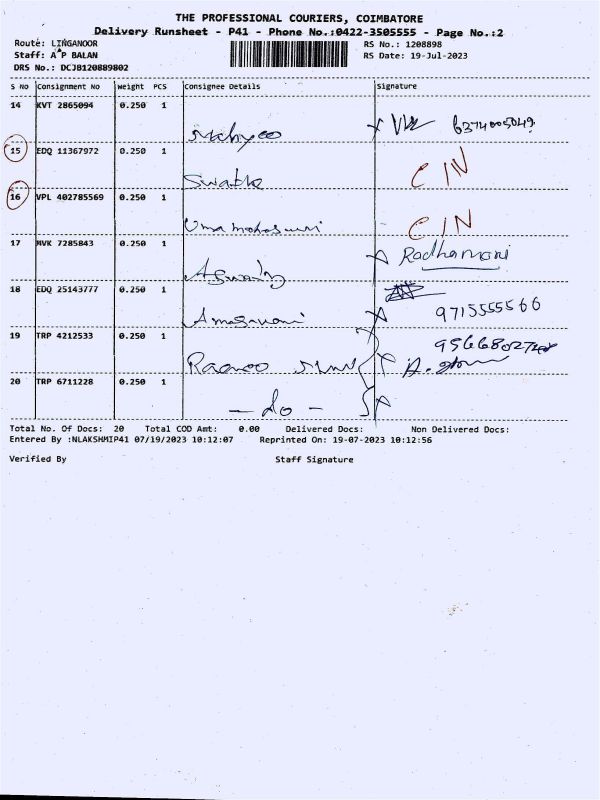 THE PROFESSIONAL COURIERS, COIMBATORE
Delivery Runsheet - P41 - Phone No.:0422-3505555 - Page No.:2
Route: LINGANOOR RS No.: 1208898
Staff: A P BALAN RS Date: 19-Jul-2023
DRS No.: DCJB120889802
S No Consignment No Weight PCS Consignee Details Signature
14 KVT 2865094 0.250 1
6374005049
15 EDQ 11367972 0.250 1
Swathe C/N
16 VPL 402785569 0.250 1
C/N
17 MVK 7285843 0.250 1
Radhamani
18 EDQ 25143777 0.250 1
9715555566
19 TRP 4212533 0.250 1
20 TRP 6711228 0.250 1
- do -
Total No. Of Docs: 20 Total COD Amt: 0.00 Delivered Docs: Non Delivered Docs:
Entered By :NLAKSHMIP41 07/19/2023 10:12:07 Reprinted On: 19-07-2023 10:12:56
Verified By Staff Signature